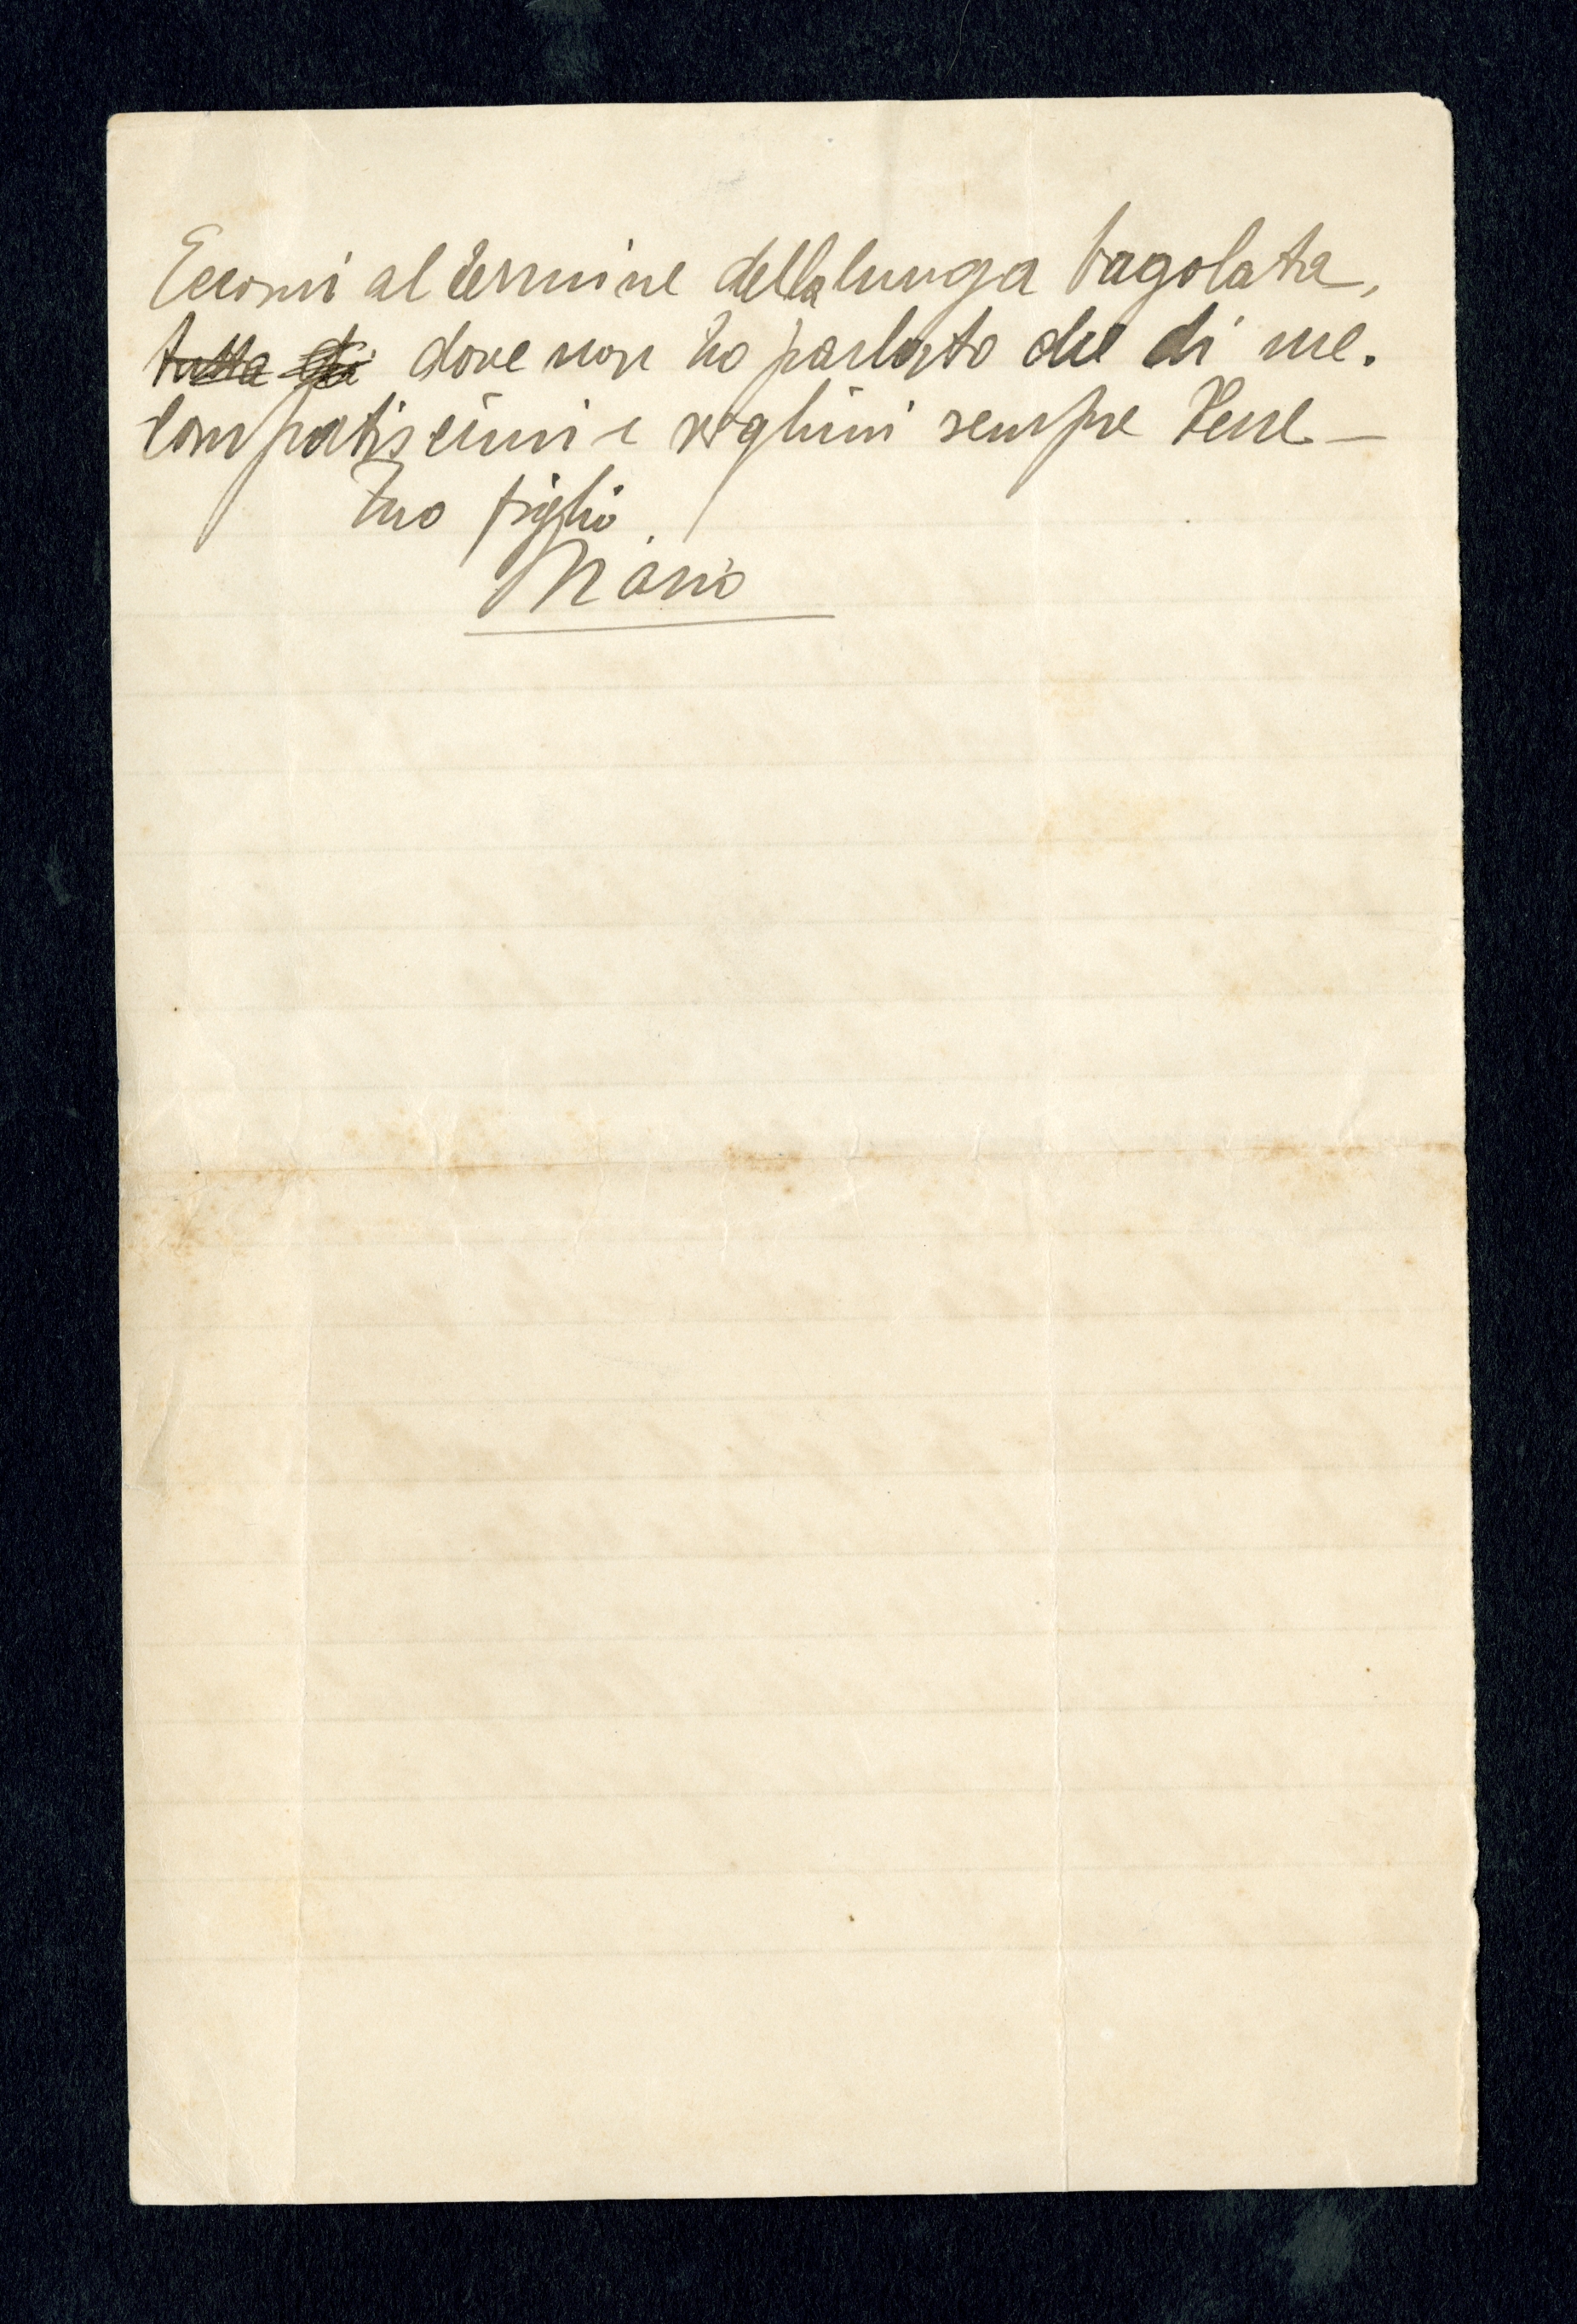 Eccomi al termine della lunga tagolata,
tutta di dove non ho parlato che di me.
Compatiscimi e voglimi sempre bene –
Tuo figlio
Mario